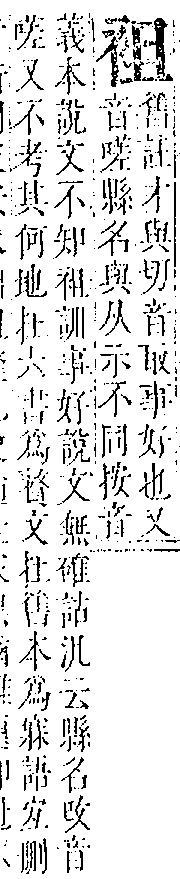 袓
舊註才與切音咀事好也又
音嗟縣名與从示不同按音
義本說文不知袓訓事好說文無確詁汎云縣名攺音
嗟又不考其何地在六書爲贅文在舊本爲寐語宜刪